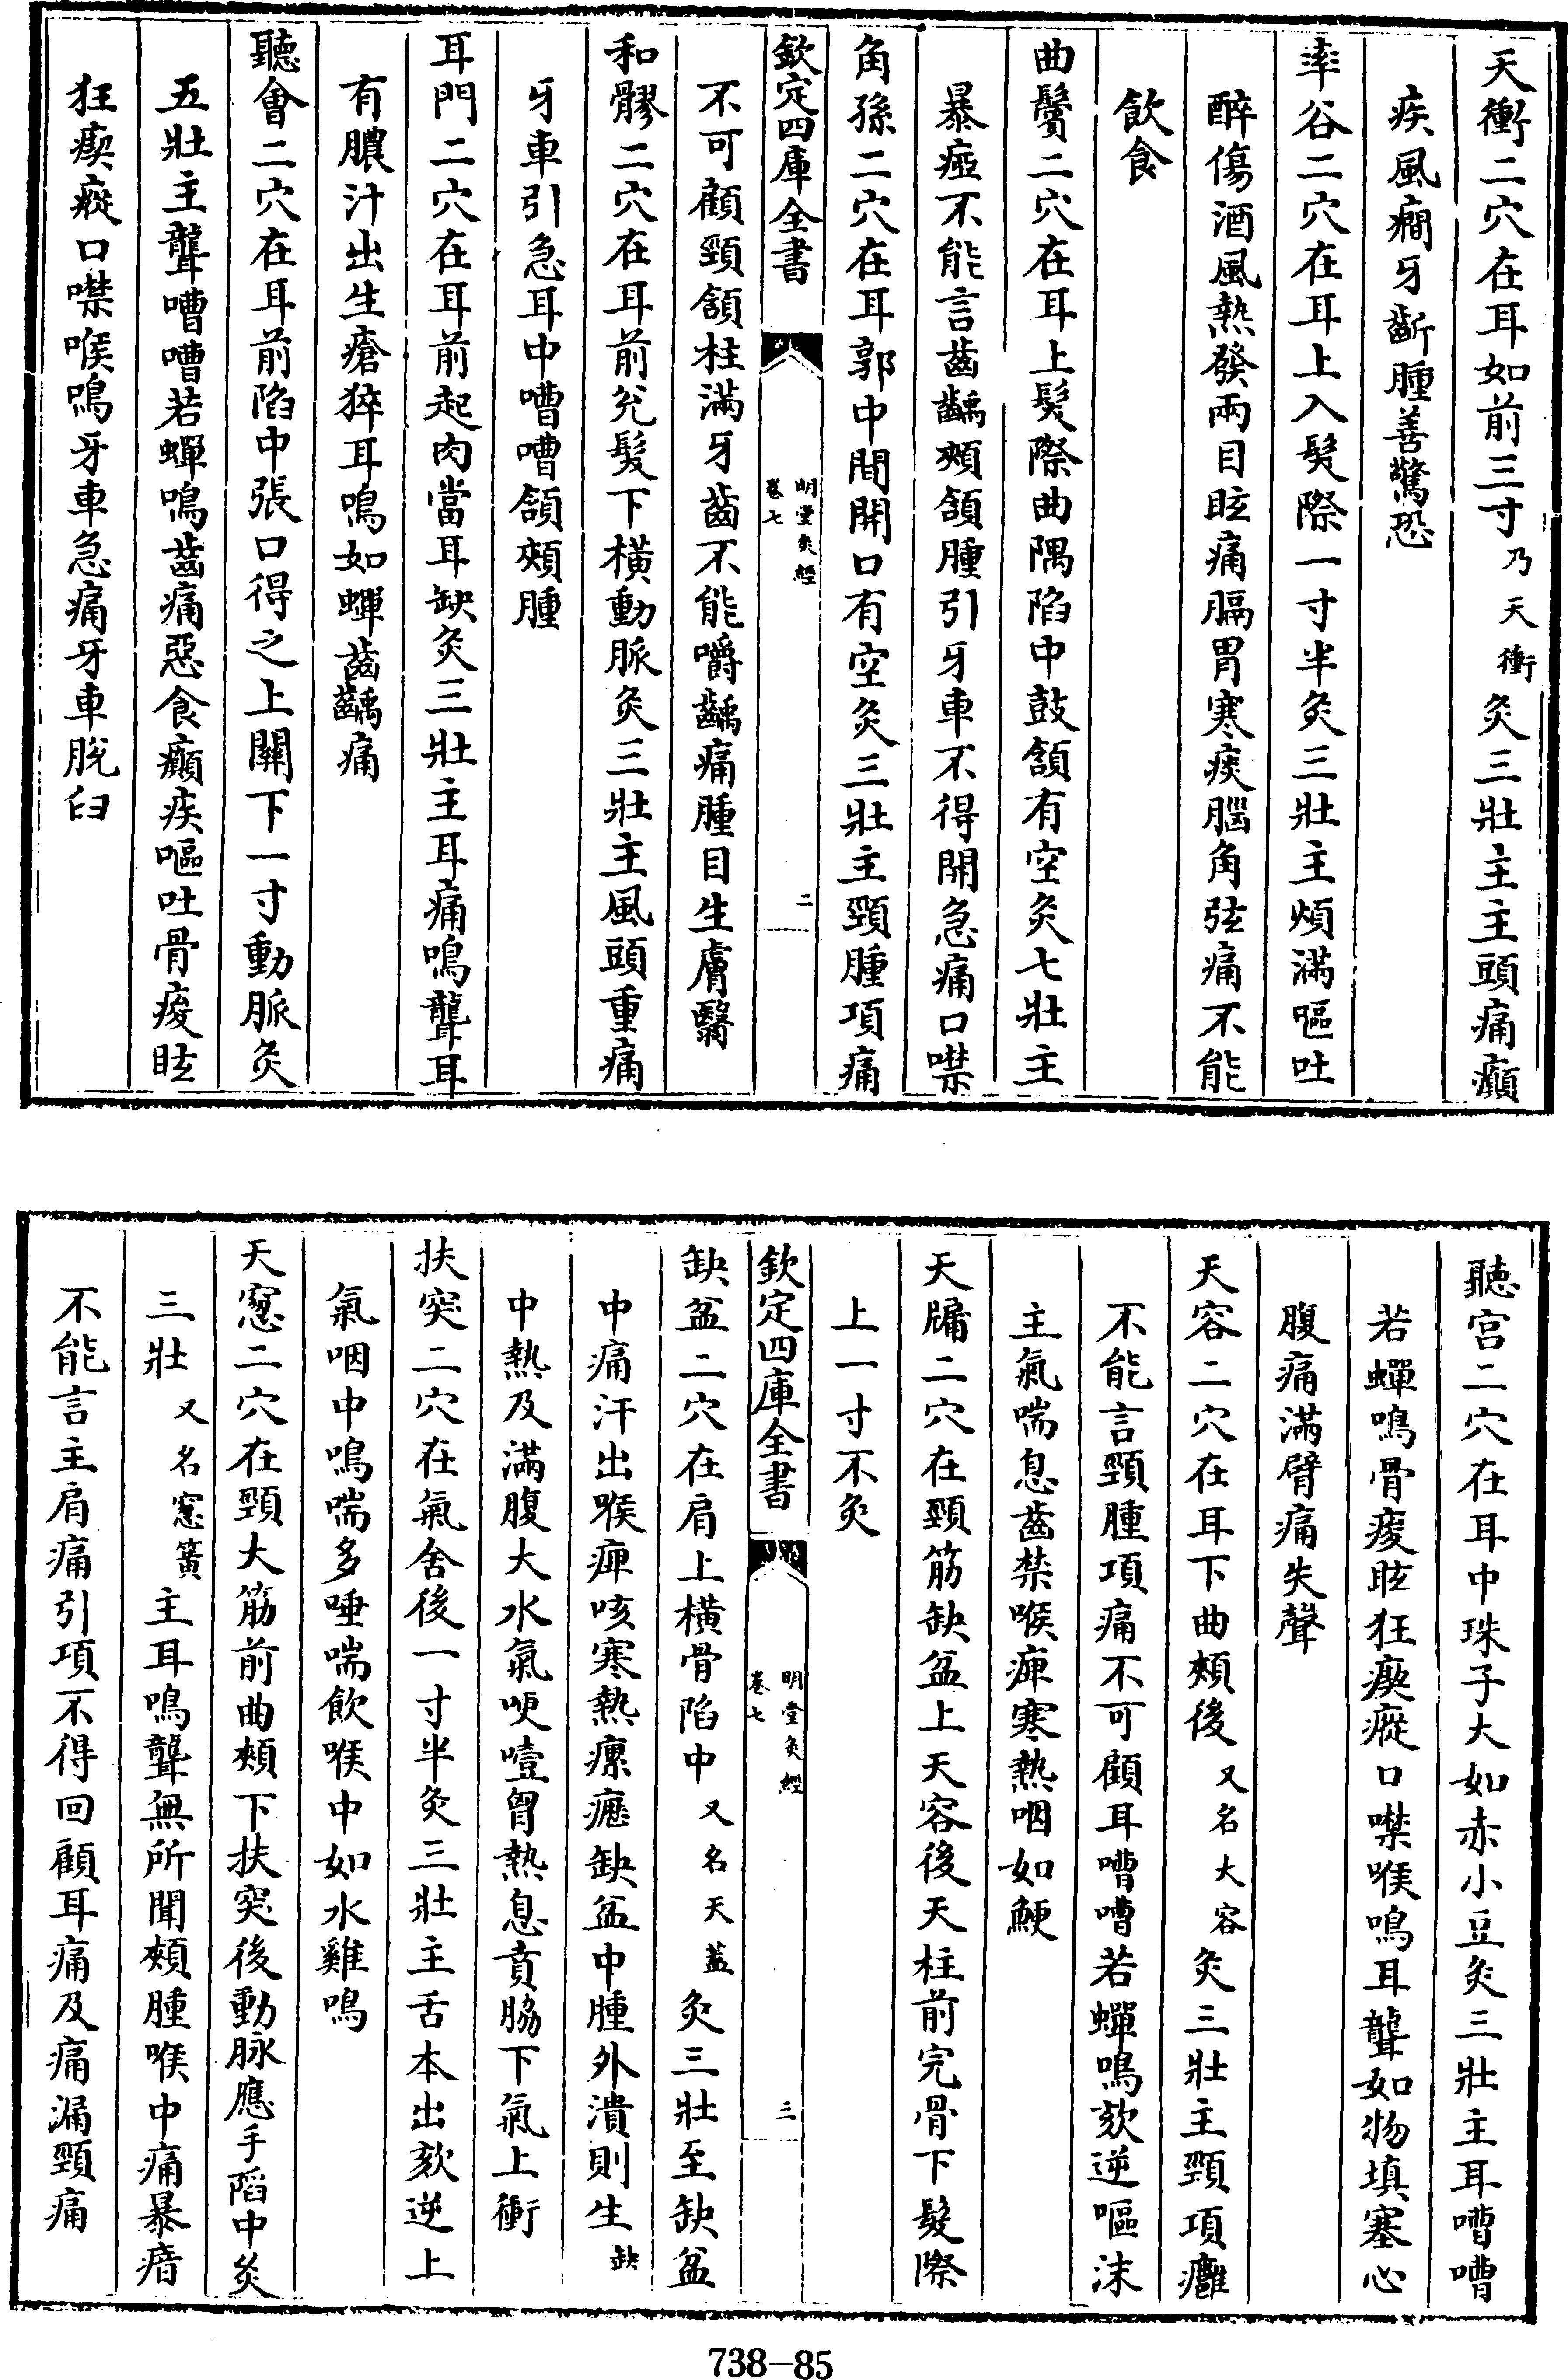 天衝二穴在耳如前三寸乃天衝灸三壯主主頭痛癲
疾風癇牙齗腫善驚恐
率谷二穴在耳上入髮際一寸半灸三壯主煩滿嘔吐
醉傷酒風熱發兩目眩痛膈胃寒痰腦角弦痛不能
飲食
曲鬢二穴在耳上髮際曲隅陷中鼓頷有空灸七壯主
暴瘂不能言齒齲頰頷腫引牙車不得開急痛口噤
角孫二穴在耳郭中間開口有空灸三壯主頸腫項痛
欽定四庫全書
明堂灸經
卷七
二
不可顧頸頷柱滿牙齒不能嚼齲痛腫目生膚翳
和髎二穴在耳前兊髮下橫動脈灸三壯主風頭重痛
牙車引急耳中嘈嘈頷頰腫
耳門二穴在耳前起肉當耳缺灸三壯主耳痛鳴聾耳
有膿汁出生瘡猝耳鳴如蟬齒齲痛
聽會二穴在耳前陷中張口得之上關下一寸動脈灸
五壯主聾嘈嘈若蟬鳴齒痛惡食癲疾嘔吐骨痠眩
狂瘈瘲口噤喉鳴牙車急痛牙車脫臼
聽宫二穴在耳中珠子大如赤小豆灸三壯主耳嘈嘈
若蟬鳴骨痠眩狂瘈瘲口噤喉鳴耳聾如物填塞心
腹痛滿臂痛失聲
天容二穴在耳下曲頰後又名大容灸三壯主頸項癰
不能言頸腫項痛不可顧耳嘈嘈若蟬鳴欬逆嘔沫
主氣喘息齒禁喉痺寒熱咽如鯁
天牖二穴在頸筋缺盆上天容後天柱前完骨下髮際
上一寸不灸
欽定四庫全書
明堂灸經
卷七
三
缺盆二穴在肩上橫骨陷中又名天蓋灸三壯至缺盆
中痛汗出喉痺咳寒熱瘰癧缺盆中腫外潰則生缺
中熱及滿腹大水氣哽噎胷熱息賁脇下氣上衝
扶突二穴在氣舍後一寸半灸三壯主舌本出欬逆上
氣咽中鳴喘多唾喘飲喉中如水雞鳴
天窓二穴在頸大筋前曲頰下扶突後動脉應手䧟中灸
三壯又名窓簧主耳鳴聾無所聞頰腫喉中痛暴瘖
不能言主肩痛引項不得回顧耳痛及痛漏頸痛
738-85